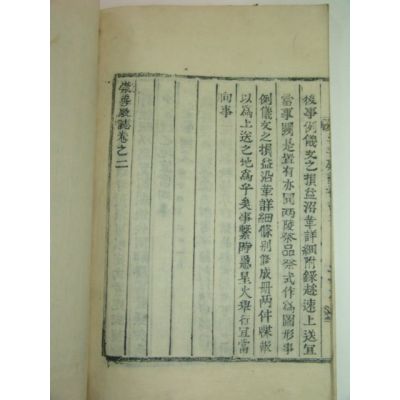 後事例儀文之損益沿革詳細附錄趁速上送宜
當事國是置有亦同兩陵祭品祭式作爲圖形事
例儀文之損益沿革詳細條別修成冊兩件牒報
以爲上送之地爲乎矣事繫時急星火擧行宜當
向事
崇善殿誌卷之二